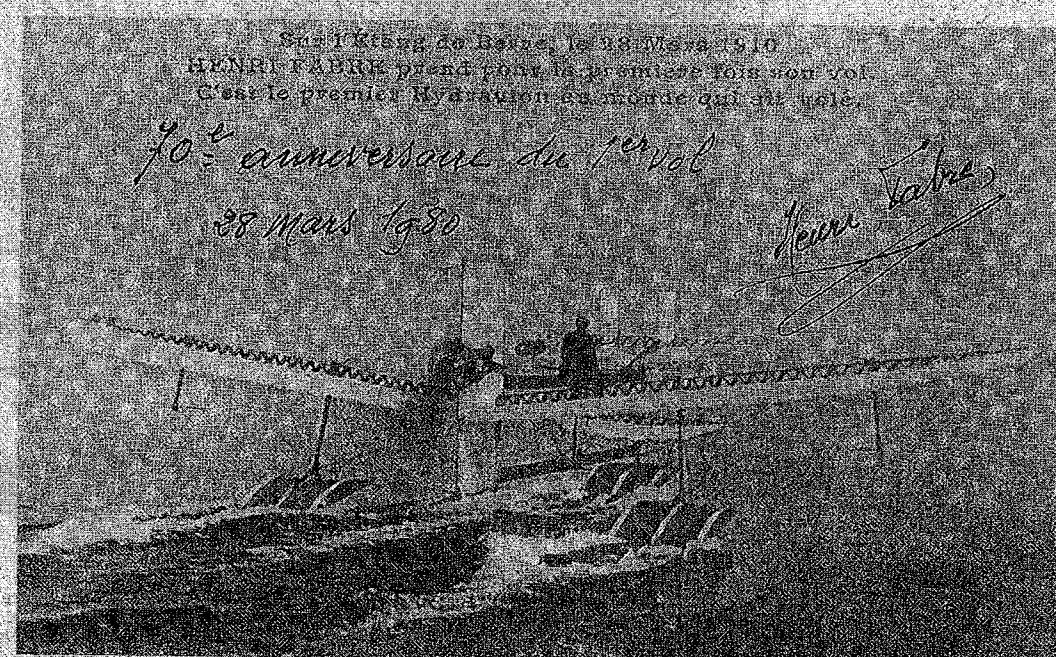 Sur l'Étang de Berre, le 28 Mars 1910
HENRI FABRE prend pour la première fois son vol.
C'est le premier Hydravion au monde qui ait volé.
70e anniversaire du 1er vol
28 Mars 1980
Henri Fabre